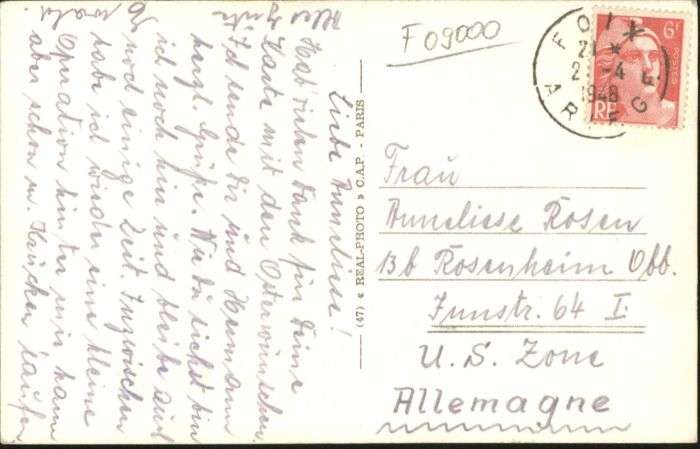 Liebe Anneliese!
Hab' vielen Dank für Deine
Karte mit den Osterwünschen.
Ich sende Dir und Hermann
herzl. Grüße. Wie Du siehst bin
ich noch hier und bleibe auch
noch einige Zeit. Inzwischen
habe ich wieder eine kleine
Operation hinter mir kann
aber schon m. Krücken laufen
Alles Gute
(47) « REAL-PHOTO » C.A.P - PARIS
F 09000
FOIX
21 *
2 -4
1948
ARIEGE
6F
POSTES
RF
Frau
Anneliese Rosen
13b Rosenheim Obb.
Innstr. 64 I.
U.S. Zone
Allemagne